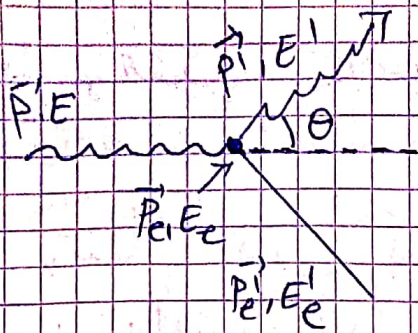 p⃗', E'
p⃗ E
θ
p⃗e, Ee
p⃗e', Ee'